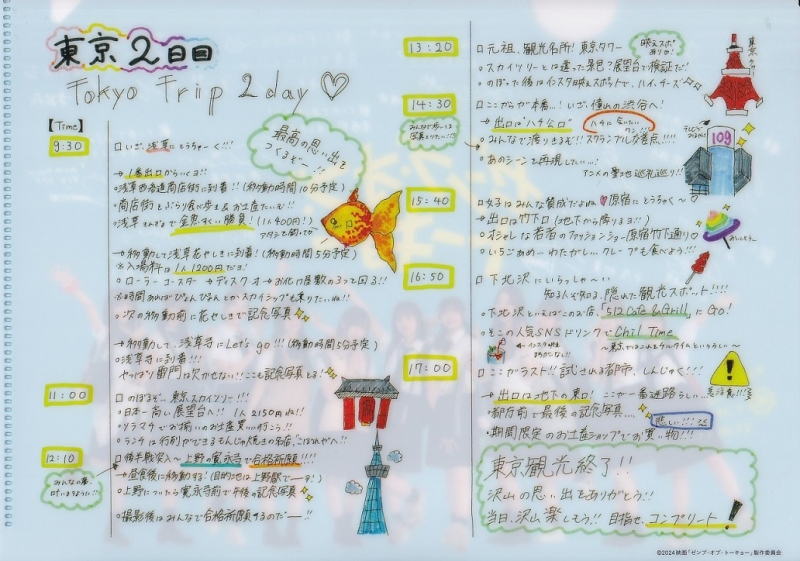 東京2日目
Tokyo Trip 2day♡
【Time】
9:30
□いざ、浅草にとうちゃーく!!!
最高の思い出を
つくるぞー!!
→1番出口からいくヨ!!
○浅草西参道商店街に到着!!(移動時間10分予定)
○商店街をぶらり食べ歩き&お土産たいむ!!
○浅草きんぎょで金魚すくい勝負!(1人400円!)
→移動して浅草花やしきに到着!(移動時間5分予定)
※入場料は1人1200円だよ!
○ローラーコースター→ディスクオー→お化け屋敷の3つで回る!!
○次の移動前に花やしきで記念写真
→移動して、浅草寺にLet's go!!!(移動時間5分予定)
○浅草寺に到着!!!
やっぱり雷門は欠かせない!!ここも記念写真とるよ!
11:00
□のぼるぞー、東京スカイツリー!!!
○日本一高い展望台へ!! 1人2150円ね!!
○ソラマチでお揃いのお土産買い行こう!!
○ランチは行列ができるもんじゃ焼きの名店、こぼれやへ!!
12:10
□後半戦突入〜上野の寛永寺で合格祈願!!!!
みんなの夢
叶いますように!!
→昼食後に移動する!(目的地は上野駅でーす!)
○上野についたら寛永寺前で午後の記念写真
○撮影後はみんなで合格祈願するのだー!!
13:20
□元祖、観光名所!東京タワー
映えスポ
ありro!
東京タワー
○スカイツリーとは違った景色?展望台で検証だ!
○のぼった後はインスタ映えスポットで、ハイ、チーズ
14:30
□ここからが本番...!いざ、憧れの渋谷へ!
→出口は"ハチ公口"
○みんなで渡りきるぞ!!スクランブル交差点!!!!
109
○あのシーンを再現したい...!
アニメの聖地巡礼巡り!!
15:40
□女子はみんな賛成だよね♡原宿にとうちゃく〜♡
→出口は竹下口(地下から降りるヨ!!)
○オシャレな若者のファッションショー原宿竹下通り♡
○いちごあめ…わたがし…クレープも食べよう!!!
16:50
□下北沢にいらっしゃ〜い
知る人ぞ知る、隠れた観光スポット!!!!
○下北沢といえばこのお店、「512 Cafe & Grill」にGo!
○そこの人気SNSドリンクでChil Time
〜東京ではこれをチルタイムというらしい〜
17:00
□ここがラスト!!試される都市、しんじゅく!!!
→出口は地下の東口! ここが一番迷路らしい...要注意!!!
・都庁前で最後の記念写真...
悲しい!!!
・期間限定のお土産ショップでお買い物!!
東京観光終了!!
沢山の思い出をありがとう!!
当日、沢山楽しもう!! 目指せ、コンプリート!
©2024映画「ゼンブ・オブ・トーキョー」製作委員会